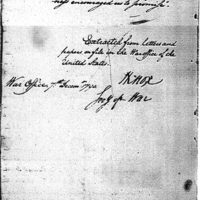 has encouraged us to promise".
Extracted from letters and
papers on file in the War office of the
United States.
War Office, 7th Decem. 1792
HKnox
Secy of War